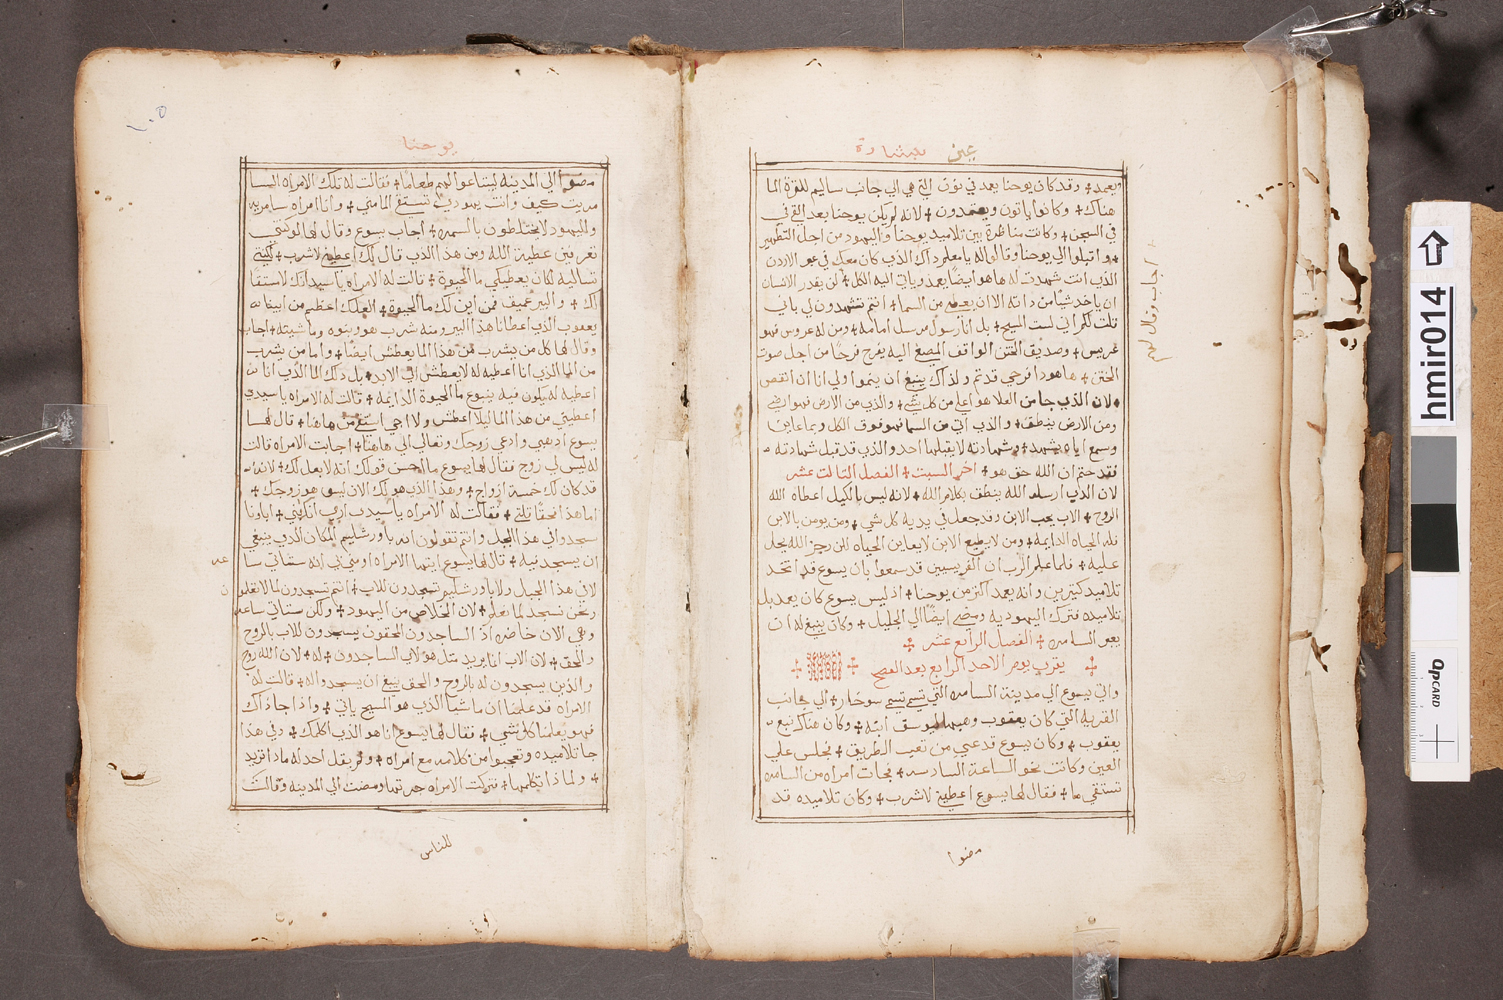 عين بشارة
ويعمد ✢ وقد كان يوحنا يعمد في نون التي هي الي جانب ساليم لكثرة الما
هناك ✢ وكانوا ياتون ويعتمدون ✢ لانه لم يكن يوحنا بعد القي في
في السجن ✢ وكانت مناظرة بين تلاميد يوحنا واليهود من اجل التطهير
✢ واتبلوا الي يوحنا وقالوا له يا معلم داك الذي كان معك في عبر الاردن
الذي انت شهدت له ها هو ايضًا يعمد وياتي اليه الكل ✢ لن يقدر الانسان
ان ياخد شيًا من داته الا ان يعطي من السما ✢ انتم تشهدون لي باني
قلت لكم اني لست المسيح ✢ بل انا رسول مرسل امامه ✢ ومن له عروس فهو
عريس ✢ وصديق الختن الواقف المصغ اليه يفرح فرحًا من اجل صوت
الختن ✢ ها هودا فرحي قد تم ولذاك ينبغ ان ينموا ولي انا ان انقص
✢ لان الذي جا من العلا هو اعلا من كل شي ✢ والذي من الارض فهو ارضي
ومن الارض ينطق ✢ والذي اتي من السما فهو فوق الكل وبما عاين
وسمع اياه يشهد ✢ وشهادته لا يقبلها احد والذي قد قبل شهادته
فقد ختم ان الله حق هو ✢ اخر السبت ✢ الفصل التالت عشر
لان الذي ارسله الله ينطق بكلام الله ✢ لانه ليس بالكيل اعطاه الله
الروح ✢ الاب يحب الابن وقد جعل في يديه كل شي ✢ ومن يومن بالابن
فله الحياه الدايمه ✢ ومن لا يطيع الابن لا يعاين الحياه لكن رجز الله يحل
عليه ✢ فلما علم الرب ان الفريسيين قد سمعوا بان يسوع قد اتخد
تلاميد كتيرين وانه يعمد اكتر من يوحنا ✢ اذ ليس يسوع كان يعمد بل
تلاميده فترك اليهوديه ومضي ايضًا الي الجليل ✢ وكان ينبغ له ان
يعبر السامره ✢ الفصل الرابع عشر ✢
✢ يقرب يوم الاحد الرابع بعد الفصح ✢ ✢
واتي يسوع الي مدينة السامره التي تسمي سوخار ✢ الي جانب
القريه التي كان يعقوب وهبها ليوسف ابنه ✢ وكان هناك نبع
يعقوب ✢ وكان يسوع قد عيي من تعب الطريق ✢ فجلس علي
العين وكانت نحو الساعة السادسه ✢ فجات امراه من السامره
تستقي ما ✢ فقال لها يسوع اعطيني لاشرب ✢ وكان تلاميده قد
مضوا
اجاب وقال لهم
يوحنا
مضوا الي المدينه ليبتاعوا لهم طعاما ✢ فقالت له تلك الامراه السا
مريت كيف وانت يهودي تستقي الما مني ✢ وانا امراه سامريه
واليهود لا يختلطون بالسمره ✢ اجاب يسوع وقال لها لو كنتي
تعرفين عطية الله ومن هذا الذي قال لك اعطيني لاشرب ✢ لكنتي
تساليه لكان يعطيكي ما الحيوة ✢ قالت له الامراه يا سيد انك لا ستقا
لك ✢ والبير عميق فمن اين لك ما الحيوة ✢ العلك اعظم من ابينا
يعقوب الذي اعطانا هذا البير ومنه شرب هو وبنوه وماشيته ✢ اجاب
وقال لها كل من يشرب من هذا الما يعطش ايضًا ✢ واما من يشرب
من الما الذي انا اعطيه له لا يعطش الي الابد ✢ بل ذلك الما الذي انا
اعطيه له يكون فيه ينبوع ما الحيوة الدايمه ✢ قالت له الامراه يا سيدي
اعطيني من هذا الما ليلا اعطش ولا اجي استقي من هاهنا ✢ قال لها
يسوع ادهبي وادعي زوجك وتعالي الي هاهنا ✢ اجابت الامراه قالت
له ليس لي زوج فقال لها يسوع ما احسن قولك انه لا بعل لك ✢ لانه
قد كان لك خمسة ازواج ✢ وهذا الذي هو لك الان ليس هو زوجك ✢
اما هذا فحقًا قلتي ✢ فقالت له الامراه يا سيد اري انك نبي ✢ اباونا
سجدوا في هذا الجبل وانتم تقولون انه باورشليم المكان الذي ينبغي
ان يسجد فيه ✢ قال لها يسوع ايتها الامراه اومني بي انه ستاتي سا
لا في هذا الجبل ولا باورشليم تسجدون للاب ✢ انتم تسجدون لما لا تعلمو
ونحن نسجد لما نعلم ✢ لان الخلاص من اليهود ✢ ولكن ستاتي ساعه
وهي الان حاضره اذ الساجدون المحقون يسجدون للاب بالروح
والحق ✢ لان الاب انما يريد متل هولاي الساجدون ✢ له ✢ لان الله روح
والذين يسجدون له بالروح والحق ينبغ ان يسجدوا له ✢ قالت له
الامراه قد علمنا ان ماشيا الذي هو المسيح ياتي ✢ واذا جا ذاك
فهو يعلمنا كل شي ✢ فقال لها يسوع انا هو الذي اكلمك ✢ وفي هذا
جا تلاميده وتعجبوا من كلامه مع امراه ✢ ولم يقل احد له مادا تريد
✢ ولماذا تكلمها ✢ فتركت الامراه جرتها ومضت الي المدينه وقالت
للناس
عه
ن
١٠٥
hmir014
QPCARD